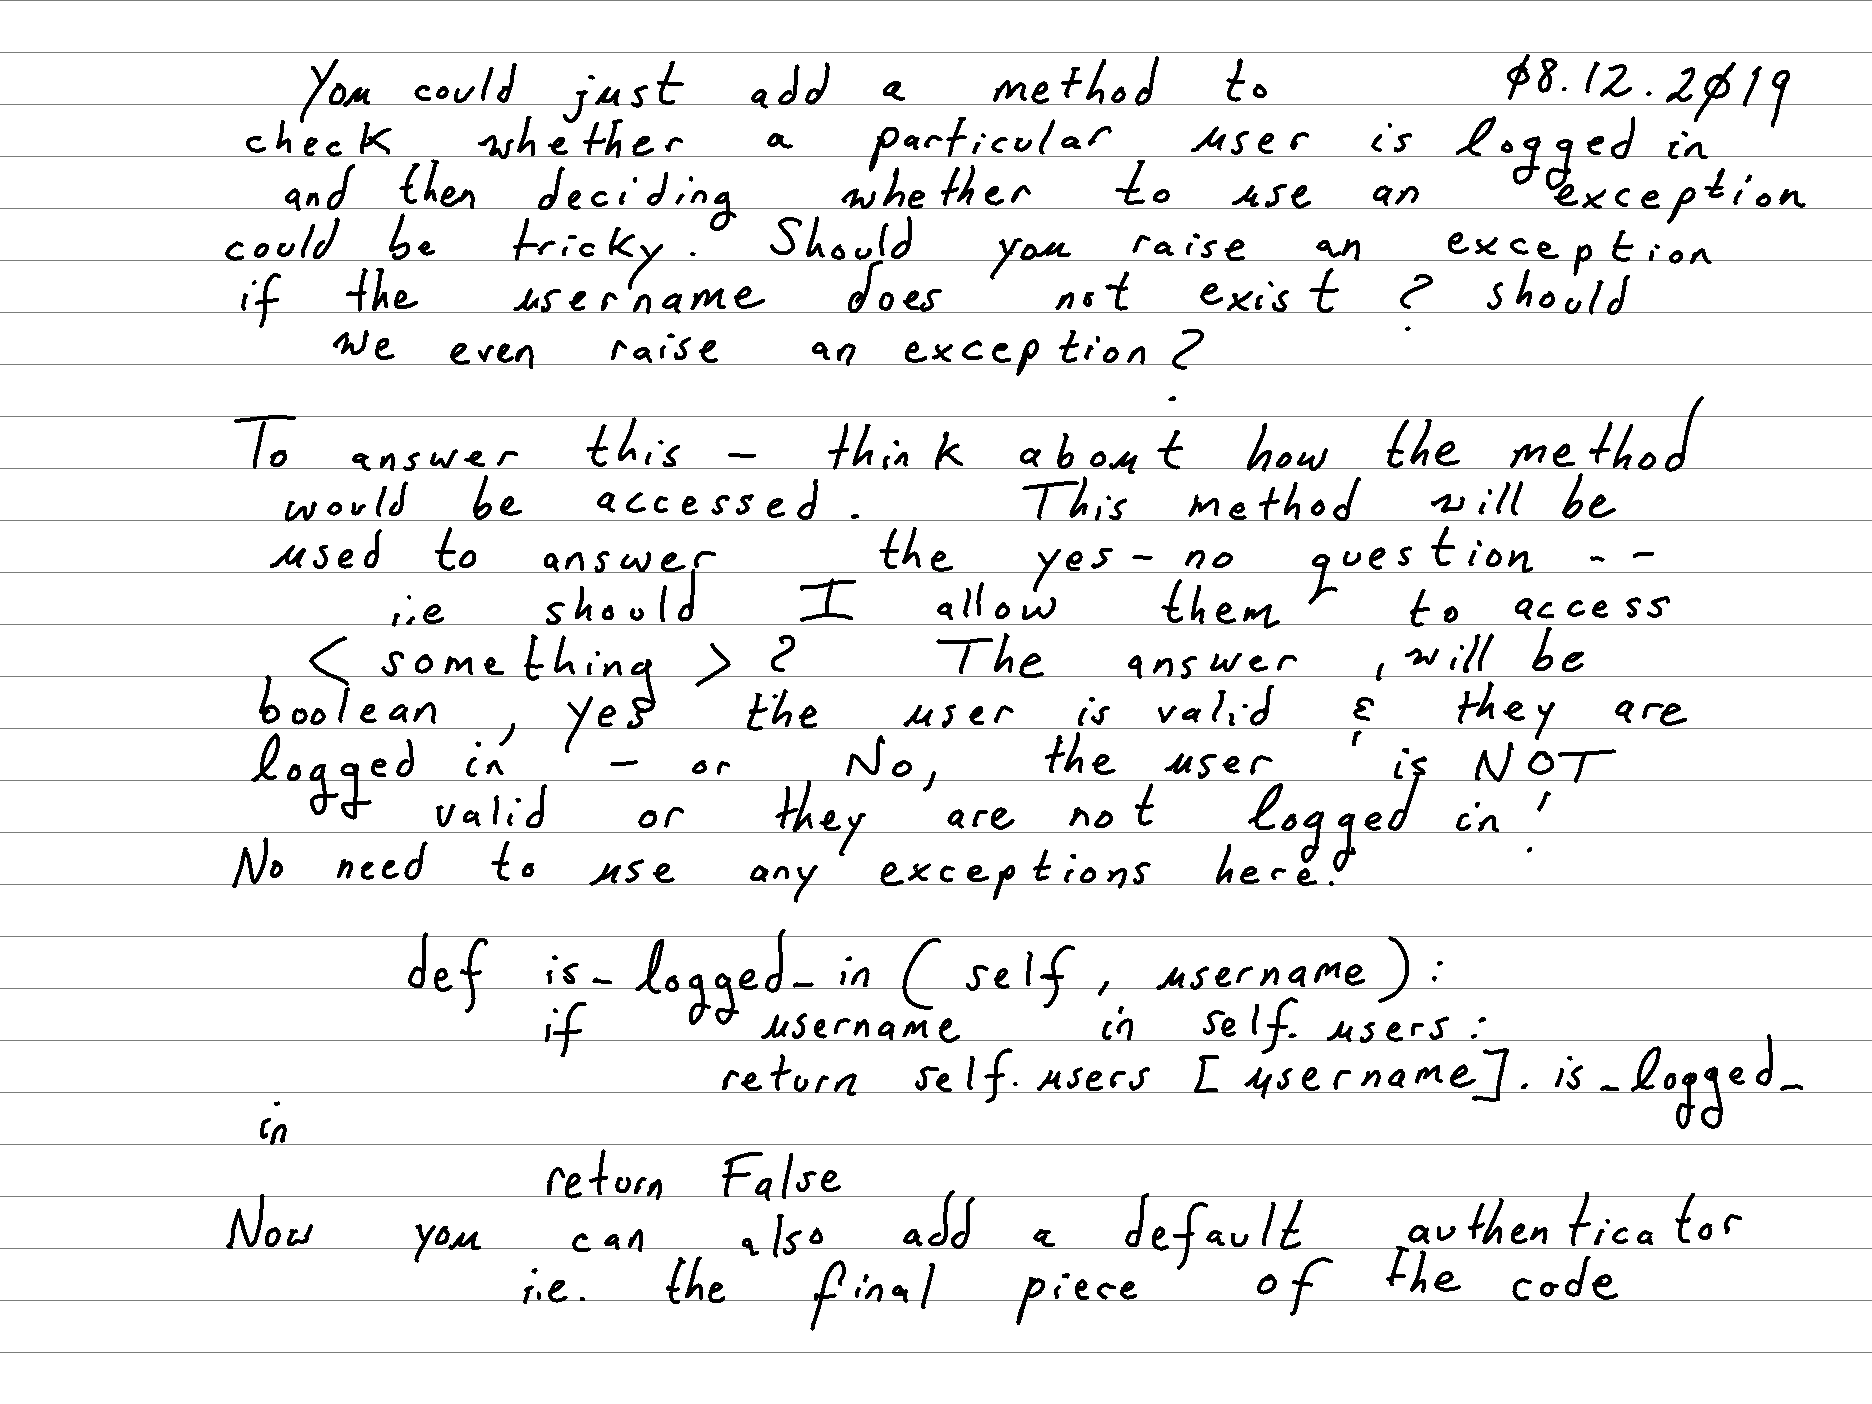 You could just add a method to 08.12.2019
check whether a particular user is logged in
and then deciding whether to use an exception
could be tricky. Should you raise an exception
if the username does not exist? should
we even raise an exception?
To answer this - think about how the method
would be accessed. This method will be
used to answer the yes-no question --
i.e should I allow them to access
<something>? The answer will be
boolean, yes the user is valid & they are
logged in - or No, the user is NOT
valid or they are not logged in!
No need to use any exceptions here.
def is_logged_in (self, username):
if username in self.users:
return self.users [username].is_logged_
in
return False
Now you can also add a default authenticator
i.e. the final piece of the code